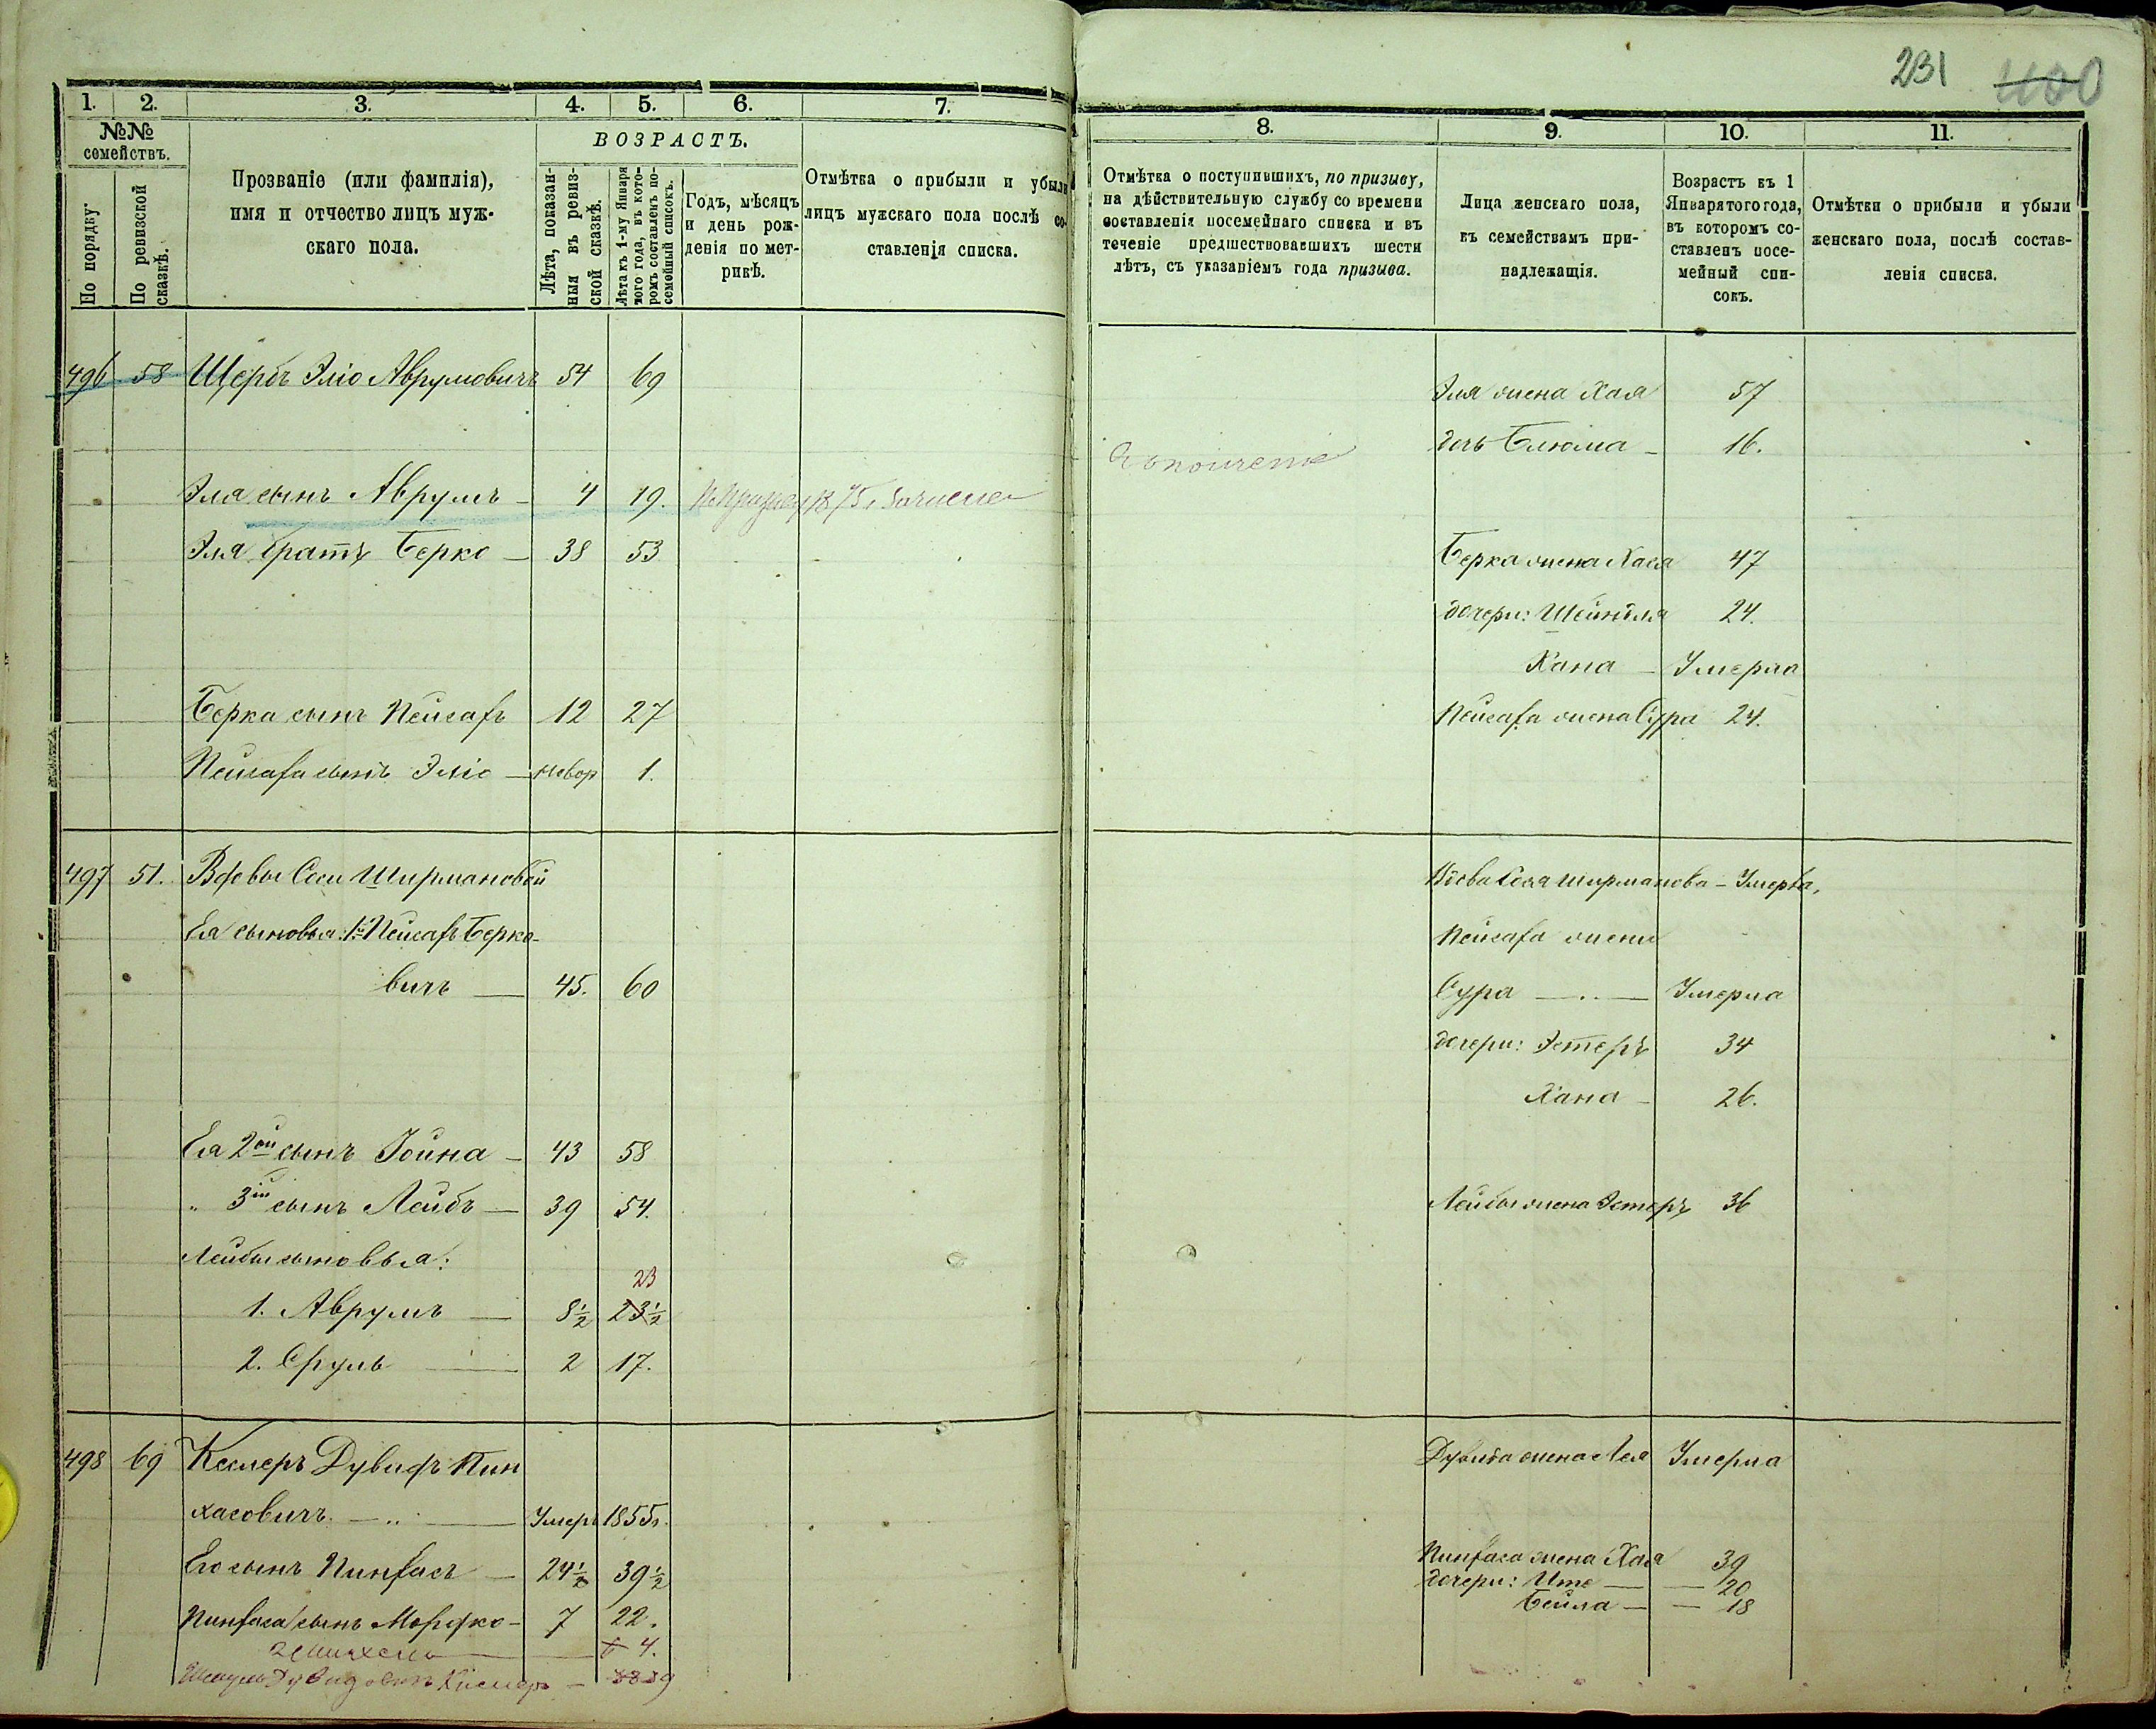 231 400
1. 2. 3. 4. 5. 6. 7.
№№ семействъ.
По порядку.
По ревизской сказкѣ.
Прозваніе (или фамилія),
имя и отчество лицъ муж-
скаго пола.
ВОЗРАСТЪ.
Лѣта, показан-
ныя въ ревиз-
ской сказкѣ.
Лѣта къ 1-му Января
того года, въ кото-
ромъ составленъ по-
семейный списокъ.
Годъ, мѣсяцъ
и день рож-
денія по мет-
рикѣ.
Отмѣтка о прибыли и убыли
лицъ мужскаго пола послѣ со-
ставленія списка.
496 58 Щербъ Эліо Аврумовичъ 54 69
Эля сынъ Аврумъ 4 19.
Эля братъ Берко 38 53
Берка сынъ Пейсахъ 12 27
Пейсаха сынъ Эліо новор 1.
497 51. Вдовы Соси Ширмановой
Ея сыновья: 1й Пейсахъ Берко-
вичъ 45. 60
Ея 2ой сынъ Іойна 43 58
" 3ій сынъ Лейбъ 39 54.
Лейбы сыновья:
23
1. Аврумъ 8½ 23½
2. Сруль 2 17.
498 69 Кеслеръ Дувидъ Пин
хасовичъ Умеръ 1855г.
Его сынъ Пинхасъ 24½ 39½
Пинхаса сынъ Мордко 7 22.
4.
Дувидовичъ
8. 9. 10. 11.
Отмѣтка о поступившихъ, по призыву,
на дѣйствительную службу со времени
составленія посемейнаго списка и въ
теченіе предшествовавшихъ шести
лѣтъ, съ указаніемъ года призыва.
Лица женскаго пола,
къ семействамъ при-
надлежащія.
Возрастъ къ 1
Января того года,
въ которомъ со-
ставленъ посе-
мейный спи-
сокъ.
Отмѣтки о прибыли и убыли
женскаго пола, послѣ состав-
ленія списка.
Эля жена Хая 57
дочь Блюма 16.
Берка жена Хася 47
дочери: Шейндля 24.
Хана Умерла
Пейсаха жена Сура 24.
Вдова Сося Ширманова Умерла,
Пейсаха жена
Сура Умерла
дочери: Эстеръ 34
Хана 26.
Лейбы жена Эстеръ 36
Дувида жена Лея Умерла
Пинхаса жена Хая 39
дочери: Ите 20
Бейла 18